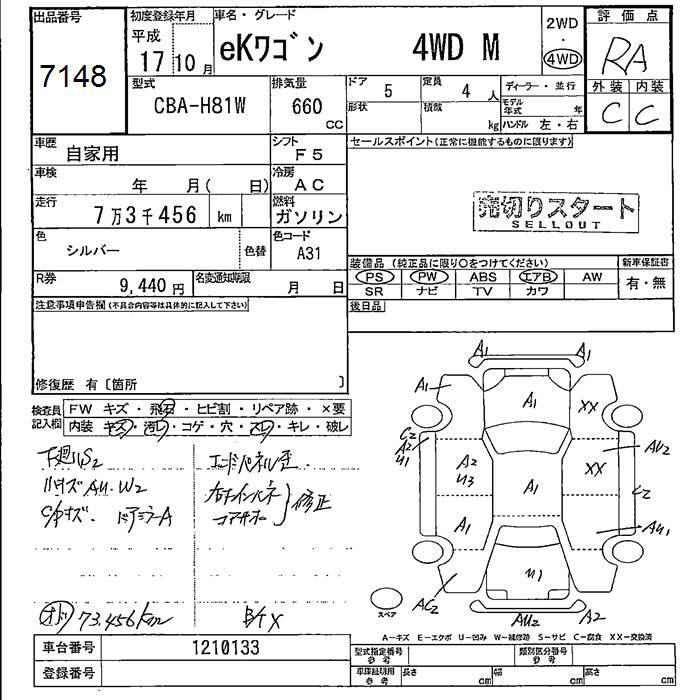 出品番号
7148
初度登録年月
平成
17 10月
車名・グレード
eKワゴン 4WD M
2WD
・
4WD
評価点
RA
外装 内装
C C
型式
CBA-H81W
排気量
660
cc
ドア
5
定員
4 人
形状
積載
kg
ディーラー・並行
モデル年式 年
ハンドル 左・右
車歴
自家用
シフト
F5
車検
年 月( 日)
冷房
AC
走行
7万3千456 km
燃料
ガソリン
色
シルバー
色替
色コード
A31
R券
9,440円
名変通知期限
月 日
セールスポイント(正常に機能するものに限ります)
売切りスタート
SELLOUT
装備品 (純正品に限り○をつけてください)
新車保証書
PS PW ABS エアB AW
SR ナビ TV カワ
有・無
後日品
注意事項申告欄(不具合内容等は具体的に記入して下さい)
修復歴 有〔箇所 〕
検査員記入欄
FW キズ・飛石・ヒビ割・リペア跡・×要
内装 キズ・汚レ・コゲ・穴・スレ・キレ・破レ
下廻りS2
ドアミラーA
修正
オドリ 73.456km
A1 A1
A1 A1 XX
C2
A2
U1
A2
U3
A1
XX
AU2
C2
A1
AU1
U1
AC2
AU2 A2
スペア
A-キズ E-エクボ U-凹み W-補修跡 S-サビ C-腐食 XX-交換済
車台番号
1210133
登録番号
型式指定番号
参考
類別区分番号
参考
車庫証明用
参考
長さ cm
幅 cm
高さ cm